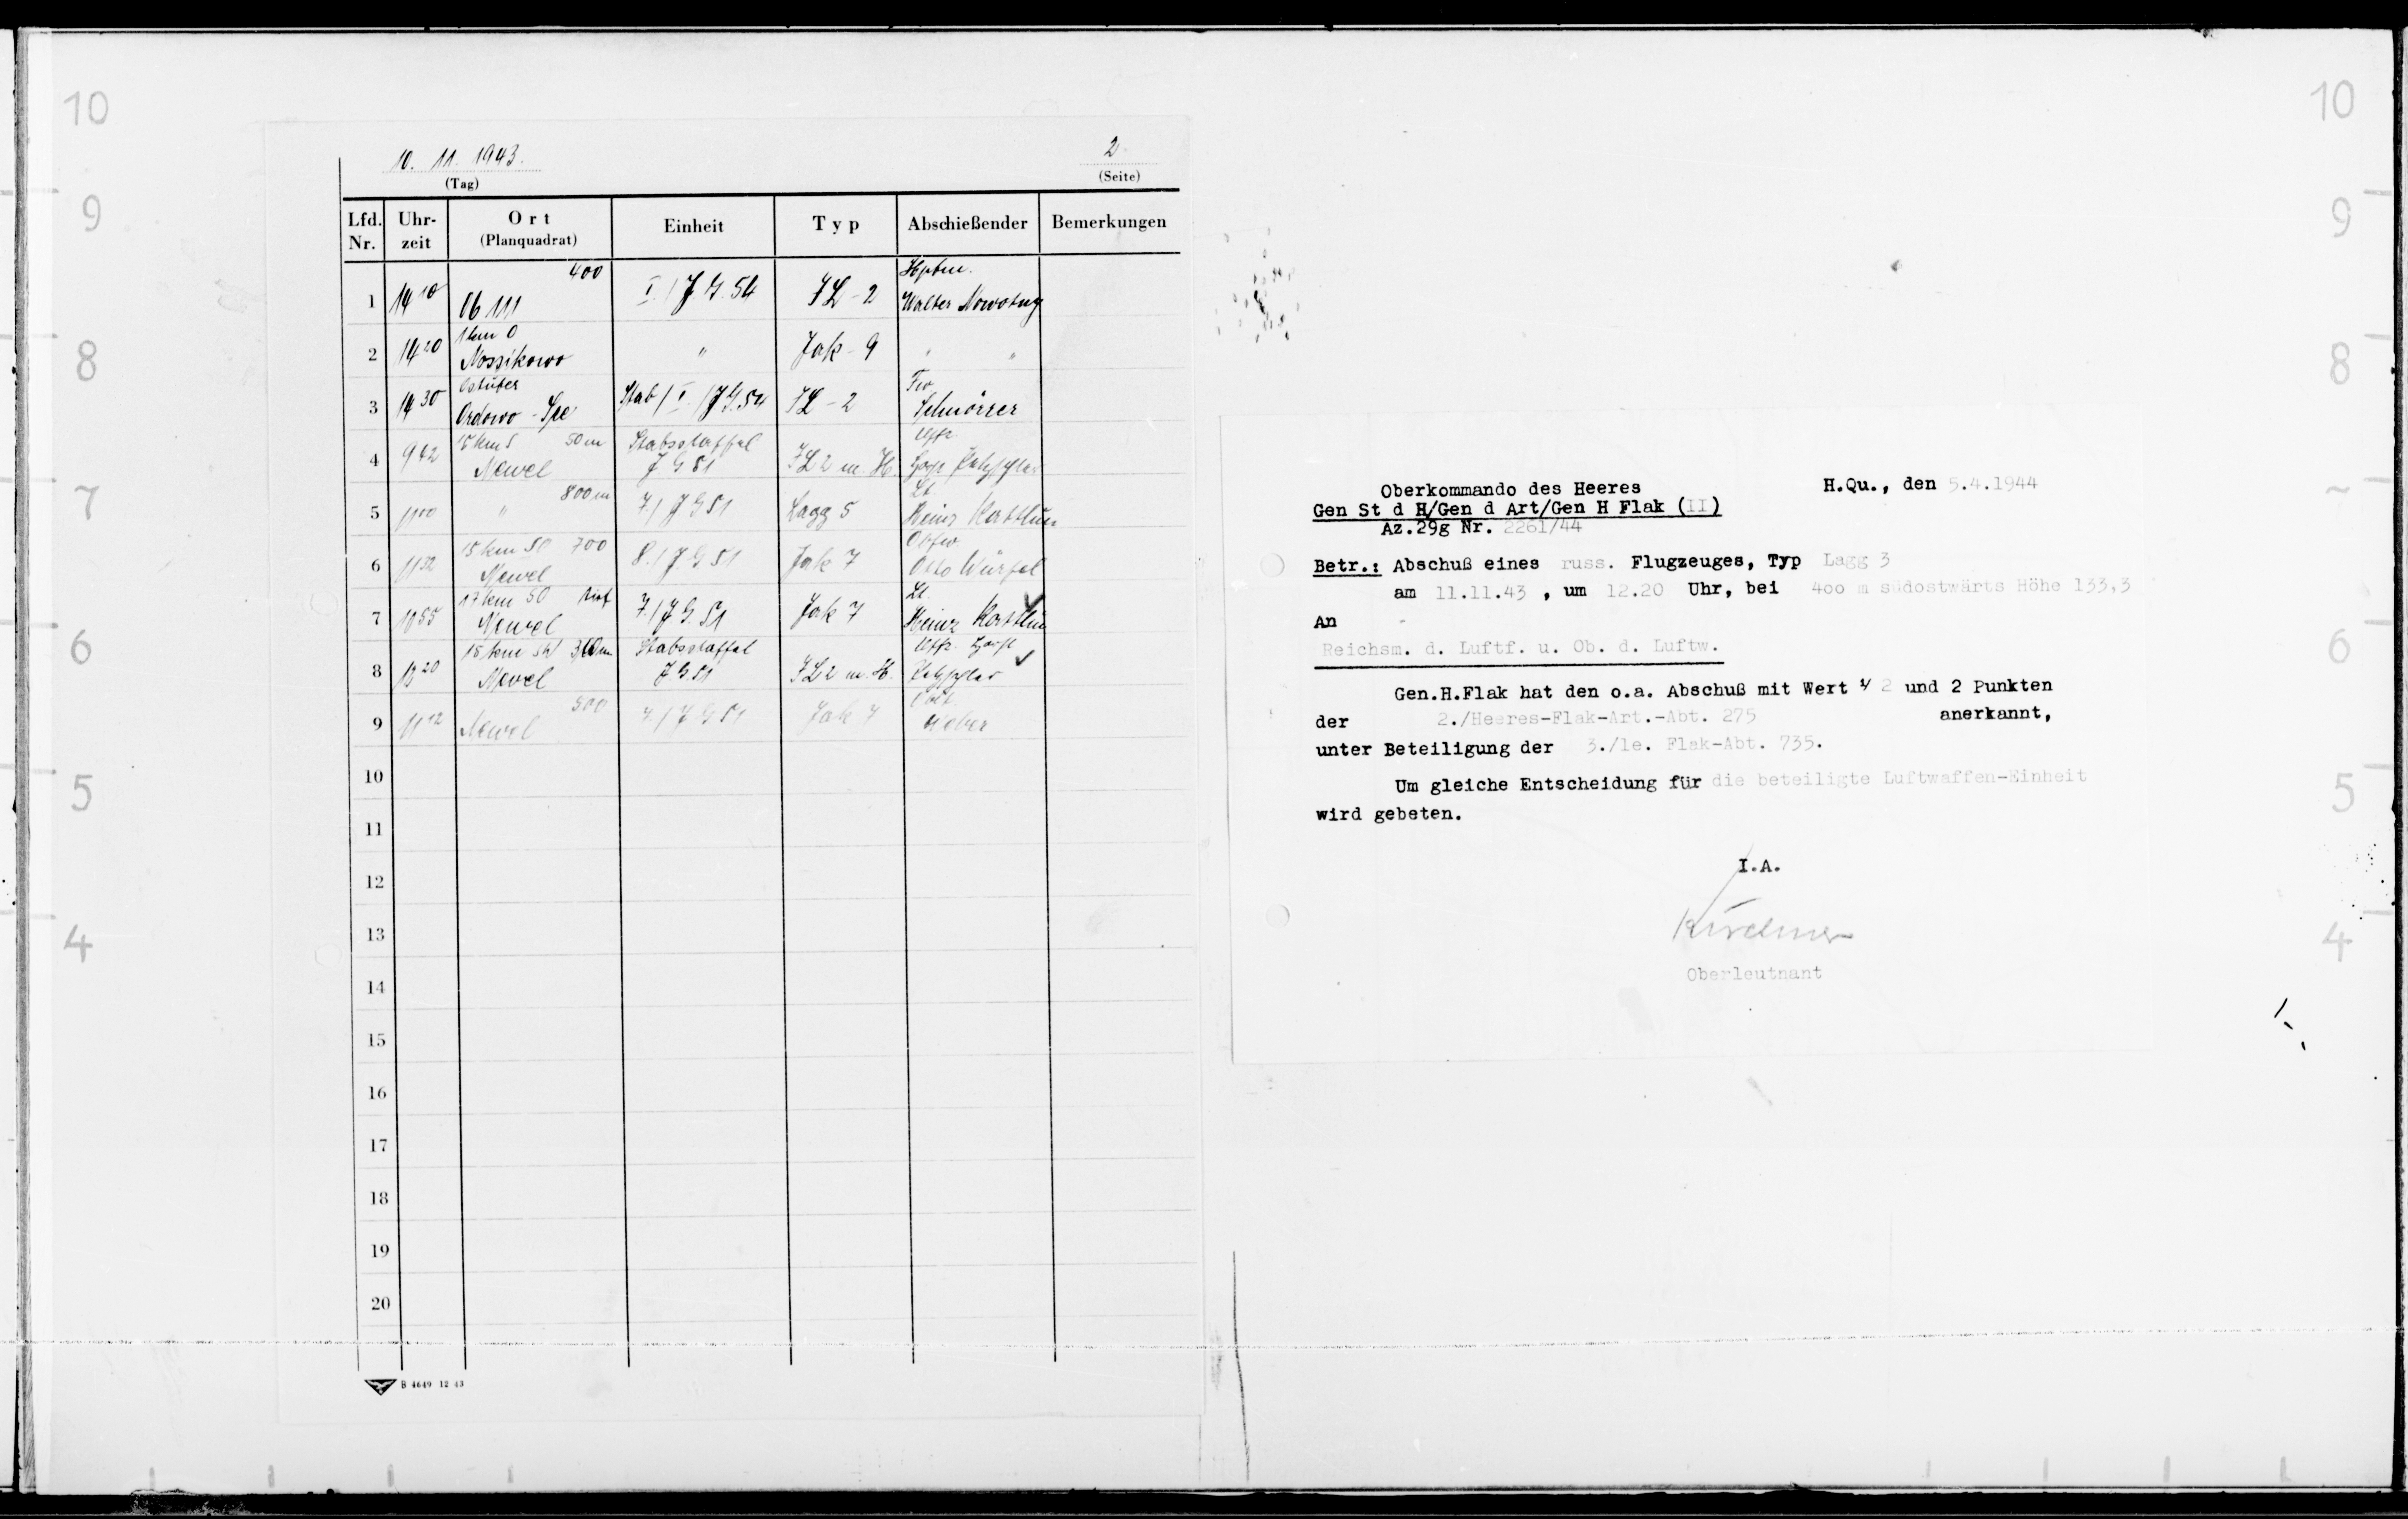 10
9
8
7
6
5
4
10. 11. 1943.
(Tag)
2
(Seite)
Lfd. Nr. Uhr-zeit Ort (Planquadrat) Einheit Typ Abschießender Bemerkungen
1 14 10 06 111 400 I./J.G.54 JL-2 Hptm. Walter Nowotny
2 14 20 1km O Nossikowo " Jak-9 " "
3 14 30 Ordowo Stab/I./J.G.54 JL-2 Fw. Schnörrer
4 9 42 15 km S 50m Newel Stabsstaffel J.G 51 JL 2 m. H. Uffz.
5 11 00 " 800m 7./J G 51 Lagg 5 Lt. Heinz
6 11 32 15 km SO 700 Newel 8./J.G 51 Jak 7 Obfw. Otto Würfel
7 17 km SO tief Newel 7./J.G.51 Jak 7 Lt. Heinz
8 15 km SW Newel Stabsstaffel J.G.51 JL 2 m. H. Uffz.
9 11 12 Newel 500 7./J G 51 Jak 7 Weber
10
11
12
13
14
15
16
17
18
19
20
B 4649 12 43
Oberkommando des Heeres H.Qu., den 5.4.1944
Gen St d H/Gen d Art/Gen H Flak (II)
Az.29g Nr. 2261/44
Betr.: Abschuß eines russ. Flugzeuges, Typ Lagg 3
am 11.11.43 , um 12.20 Uhr, bei 400 m südostwärts Höhe 133,3
An
Reichsm. d. Luftf. u. Ob. d. Luftw.
Gen.H.Flak hat den o.a. Abschuß mit Wert 1/2 und 2 Punkten
der 2./Heeres-Flak-Art.-Abt. 275 anerkannt,
unter Beteiligung der 3./le. Flak-Abt. 735.
Um gleiche Entscheidung für die beteiligte Luftwaffen-Einheit
wird gebeten.
I.A.
Oberleutnant
10
9
8
6
5
4